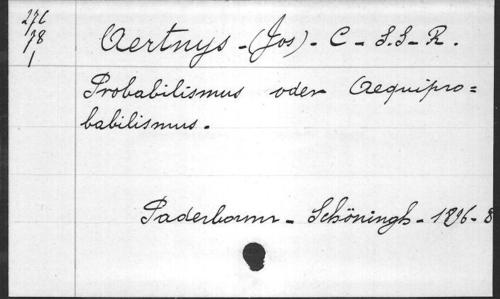 276
78
1
Aertnys - (Jos) - C - S.S - R.
Probabilismus oder Aequipro=
babilismus.
Paderborn - Schöningh - 1896 - 8